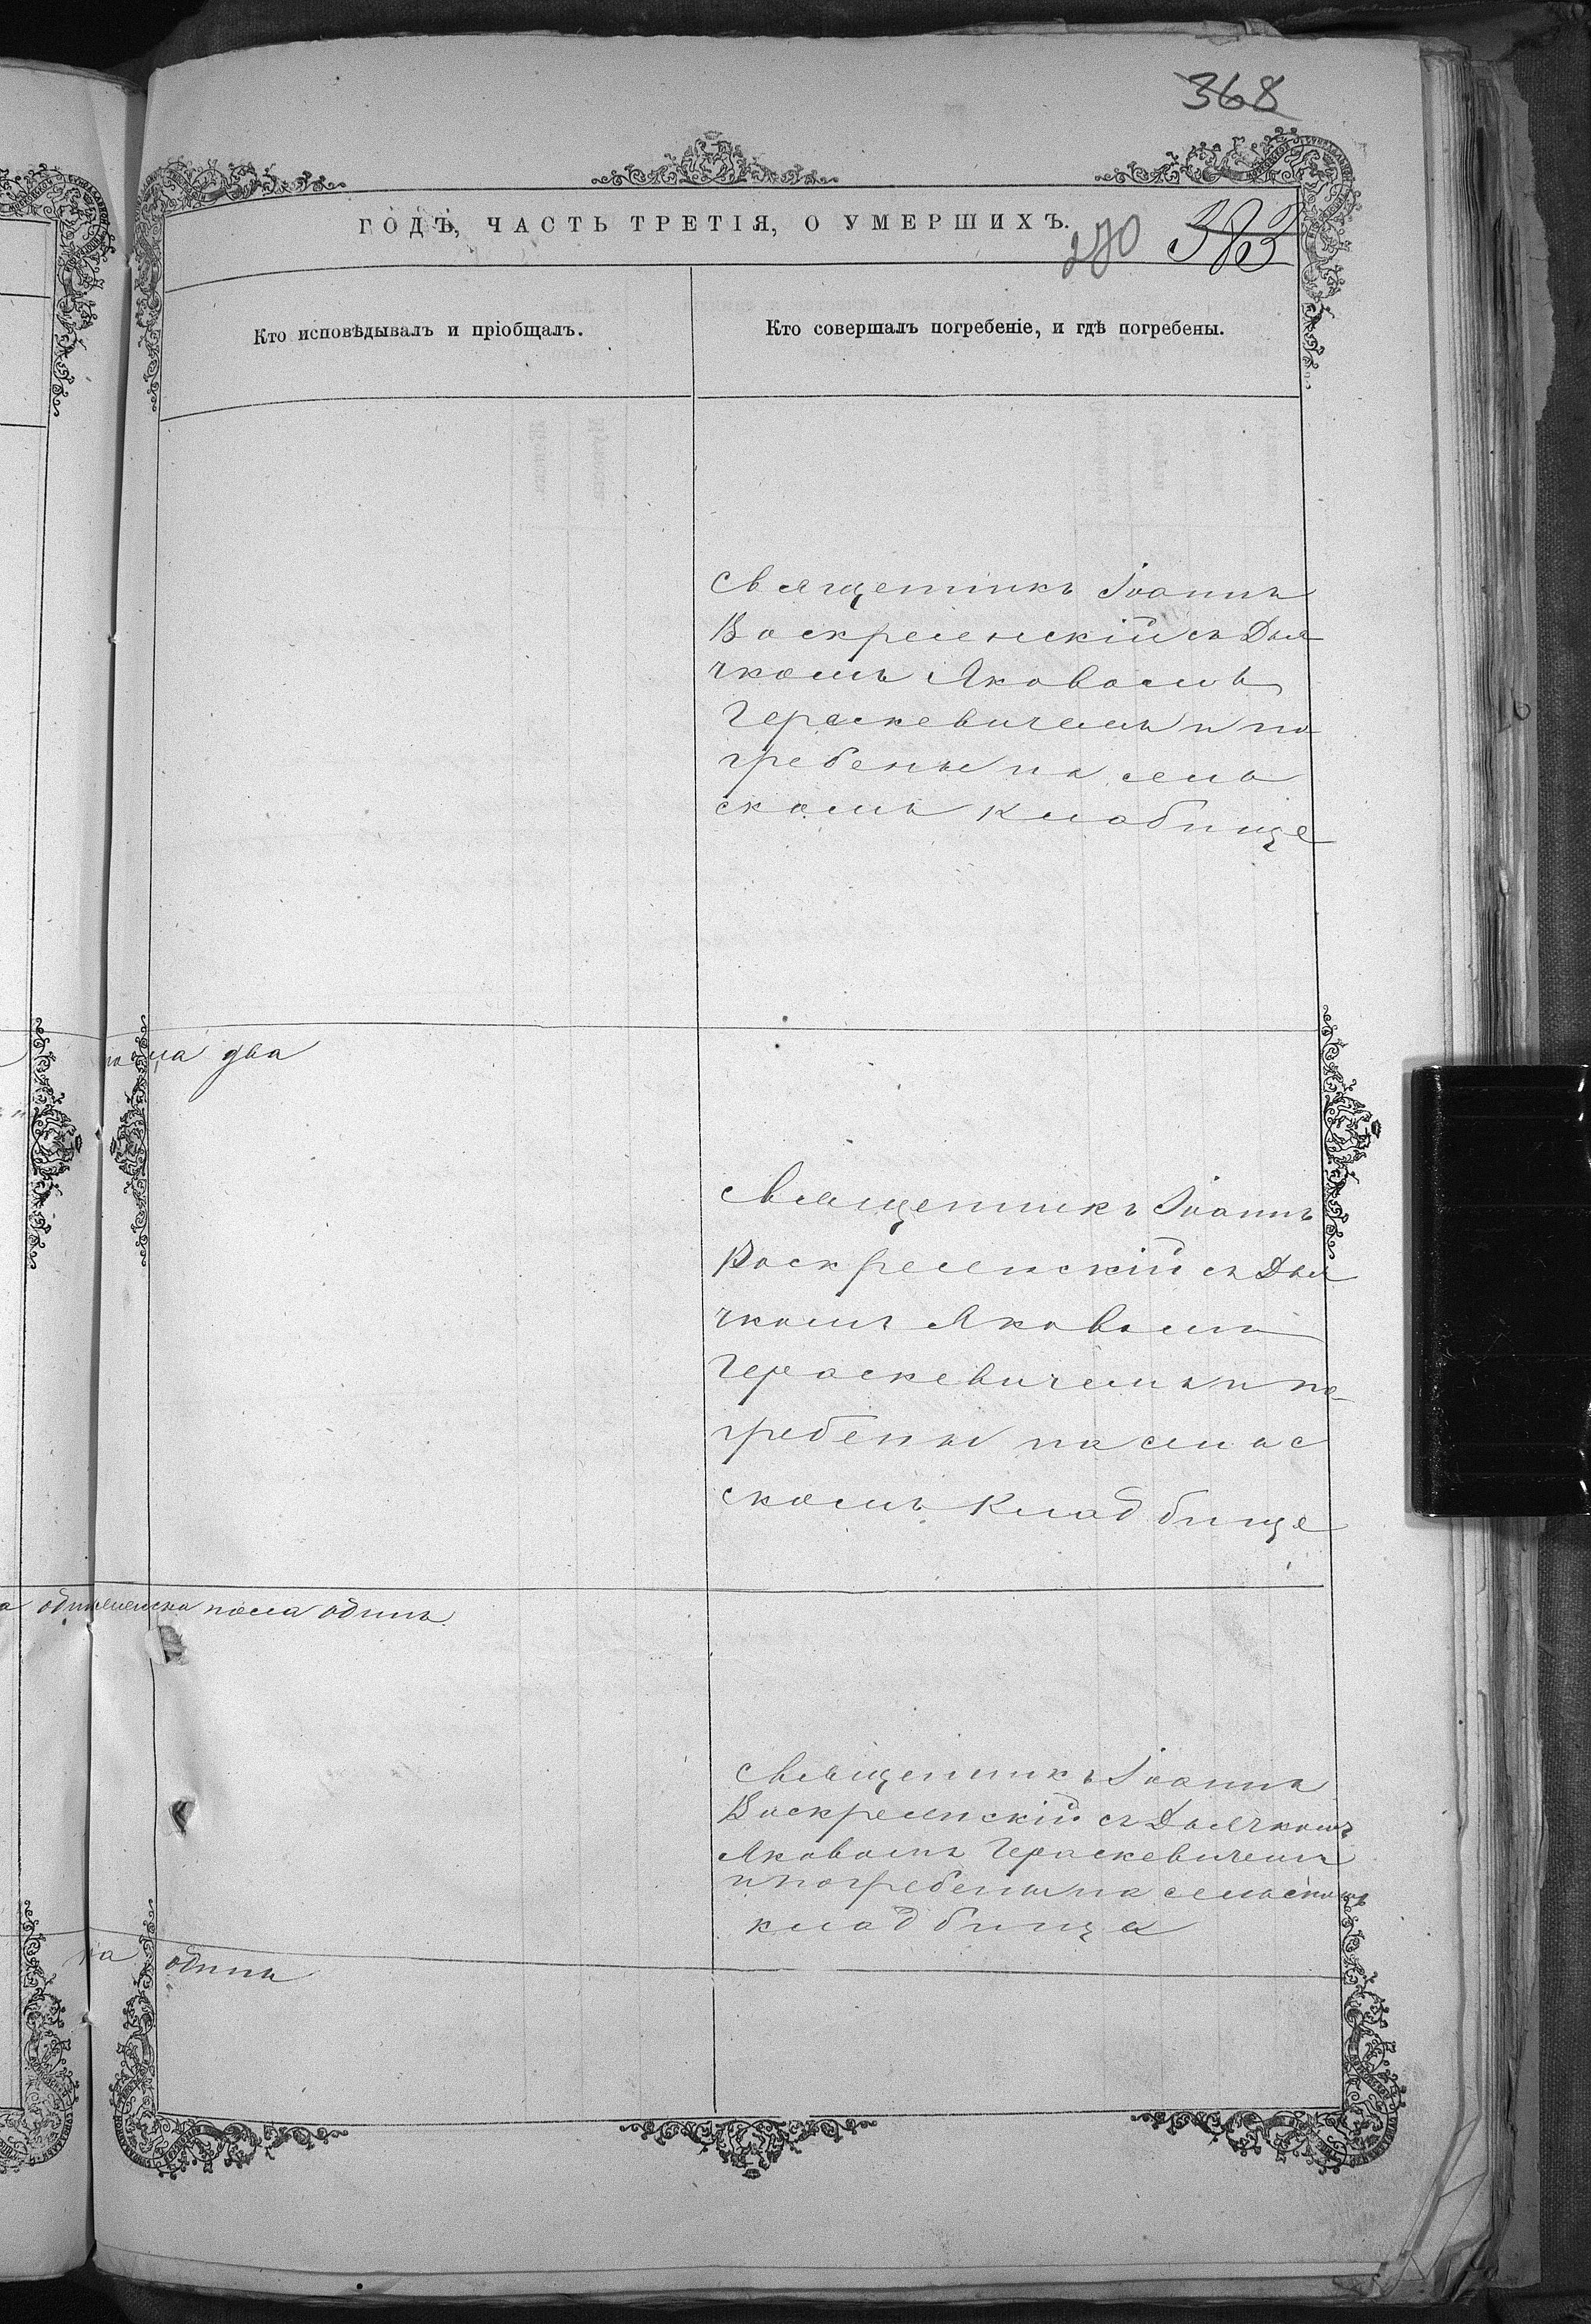 368
ГОДЪ, ЧАСТЬ ТРЕТІЯ, О УМЕРШИХЪ.
280 383
Кто исповѣдывалъ и пріобщалъ.
Кто совершалъ погребеніе, и гдѣ погребены.
Священникъ Іоаннъ
Воскресенскій съ Дья
чкомъ Яковомъ
Гераскевичемъ и по
гребены на сель
скомъ клабище
пола два
Священникъ Іоаннъ
Воскресенскій съ Дья
чкомъ Яковомъ
Гераскевичемъ и по-
гребены на сельс
скомъ Кладбище
пола одинъ
Священникъ Іоаннъ
Воскресенскій съ Дьячкомъ
Яковомъ Гераскевичемъ
и погребены на сельскомъ
кладбище
одинъ